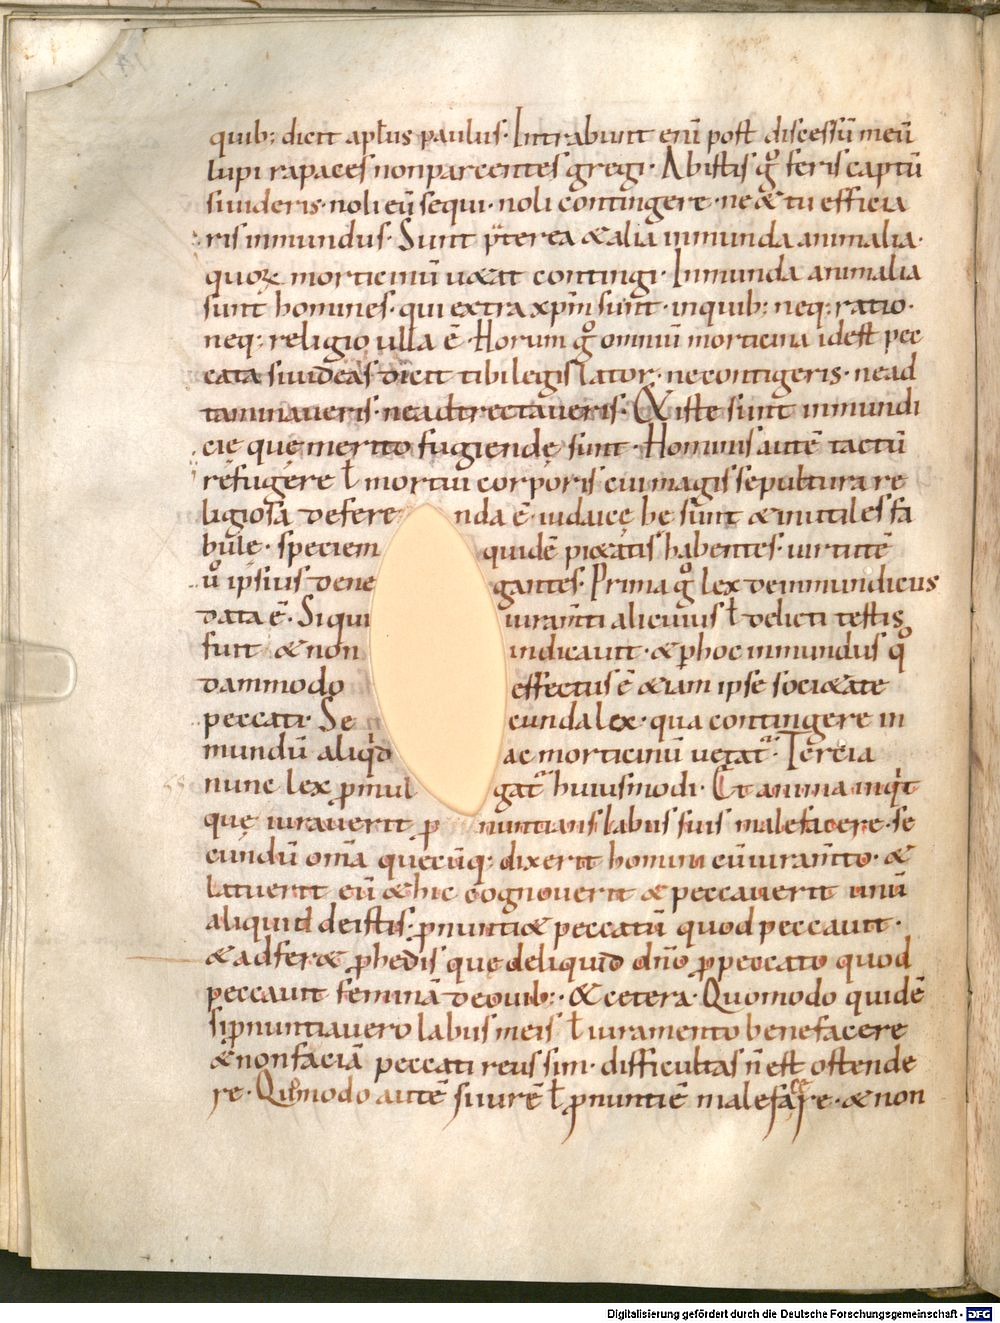 quib; dicit apłus paulus· Intrabunt enī post discessū meū
lupi rapaces non parcentes gregi· A bistis gͦ feris captū
si uideris· noli eū sequi· noli contingere· ne & tu efficia
ris inmundus· Sunt p̄terea & alia inmunda animalia·
quoꝝ morticinū uetat contingi· Inmunda animalia
sunt homines· qui extra xp̄m sunt· in quib; neq; ratio·
neq; religio ulla ē· Horum gͦ omniū morticina id est pec
cata si uideas dicit tibi legislator· ne contigeris· ne ad
taminaueris· ne adtrectaueris· & istę sunt inmundi
cię quę merito fugiendę sunt· Hominis autē tactū
refugere ł mortui corporis cui magis sepultura re
ligiosa defere nda ē· iudaicę hę sunt & inutiles fa
bulę· speciem quidē pi&atis habentes· uirtutē
ū ipsius dene gantes· Prima gͦ lex de inmundiciis
data ē· Si qui iuram̄ti alicuius ł delicti testis
fuit & non indicauit· & p hoc inmundus qͦ
dammodo effectus ē & iam ipse soci&ate
peccati· Se cunda lex· qua contingere in
mundū aliqd ac morticinū uetat᷑· Tercia
nunc lex p̄mul gat᷑ huiusmodi· Et anima inqt
quę iurauerit p nuntians labiis suis malefacere· se
cundū om̄a quecūq; dixerit homini cū iuram̄to· &
latuerit eū & hic cognouerit & peccauerit unū
aliquid de istis· p̄nunti& peccatū quod peccauit·
& adfer& p his quę deliquid dn̄o p peccato quod
peccauit feminā de ouib;· & cetera· Quomodo quidē
si p̄nuntiauero labiis meis ł iuramento benefacere
& non faciā peccati reus sim· difficultas n̄ est ostende
re· Quomodo autē si iurē ł p̄nuntiē malefacere· & non
Digitalisierung gefördert durch die Deutsche Forschungsgemeinschaft - DFG